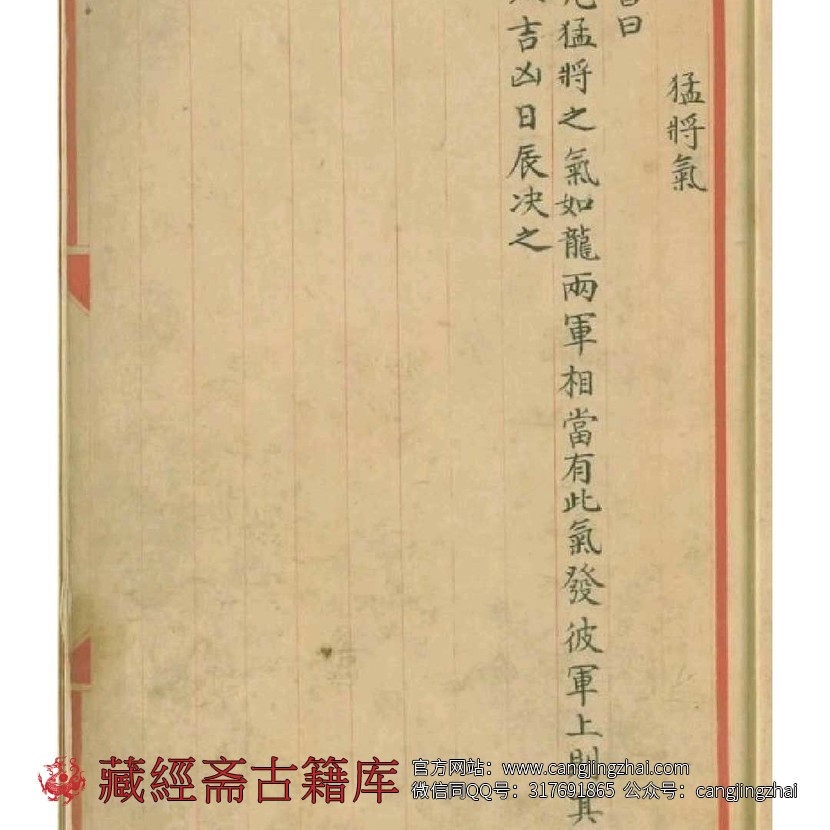 猛將氣
曰
猛將之氣如龍兩軍相當有此氣發彼軍上則其
吉凶日辰决之
藏經斋古籍库
官方网站：www.cangjingzhai.com
微信同QQ号：317691865 公众号：cangjingzhai